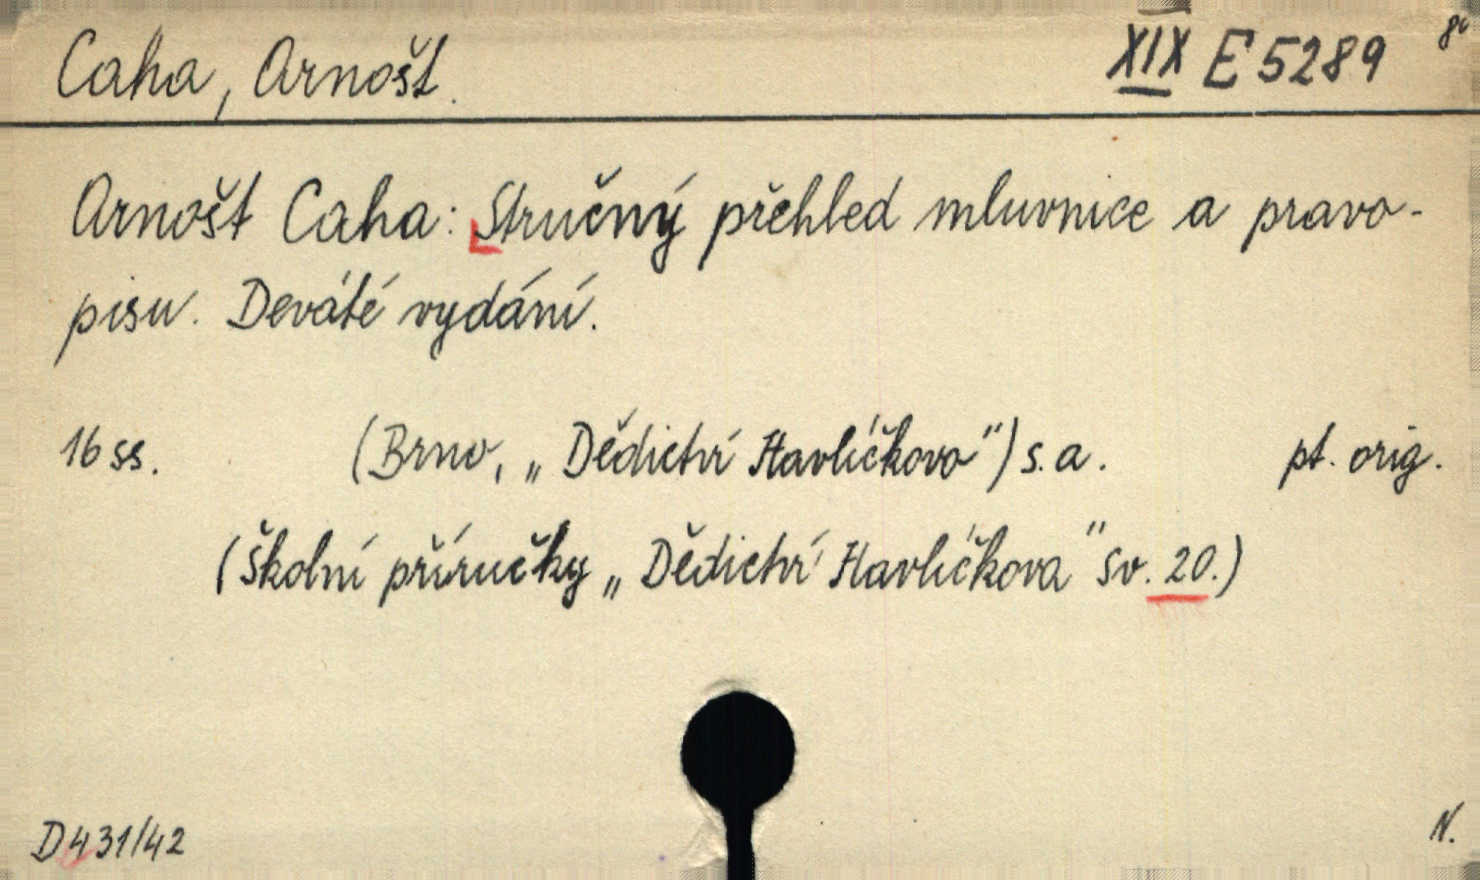 Caha, Arnošt. XIX E 5289 8°
Arnošt Caha: Stručný přehled mluvnice a pravo-
pisu. Deváté vydání.
16 ss. (Brno, „Dědictví Havlíčkovo") s. a. pt. orig.
(Školní příručky „Dědictví Havlíčkova" sv. 20.)
D 431/42 N.